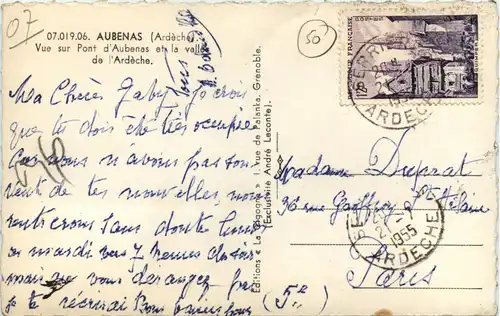 07
07.019.06. AUBENAS (Ardèche).
Vue sur Pont d'Aubenas et la vallée
de l'Ardèche.
50
Ma Chère Gaby, Je crois
que tu dois être très occupée
Car nous n'avons pas sou
vent de tes nouvelles, nous
rentrerons sans doute lundi
ou mardi vers 7 heures
mais ne vous dérangez pas
je te récrirai
Editions « La Cigogne » 1, rue de Palanka, Grenoble.
Exclusivité André Leconte.
RÉPUBLIQUE FRANÇAISE
POSTES
12F
1955
ARDECHE
Madame Duprat
36 rue Geoffroy St Hilaire
Paris
(5e)
1955
ARDECHE